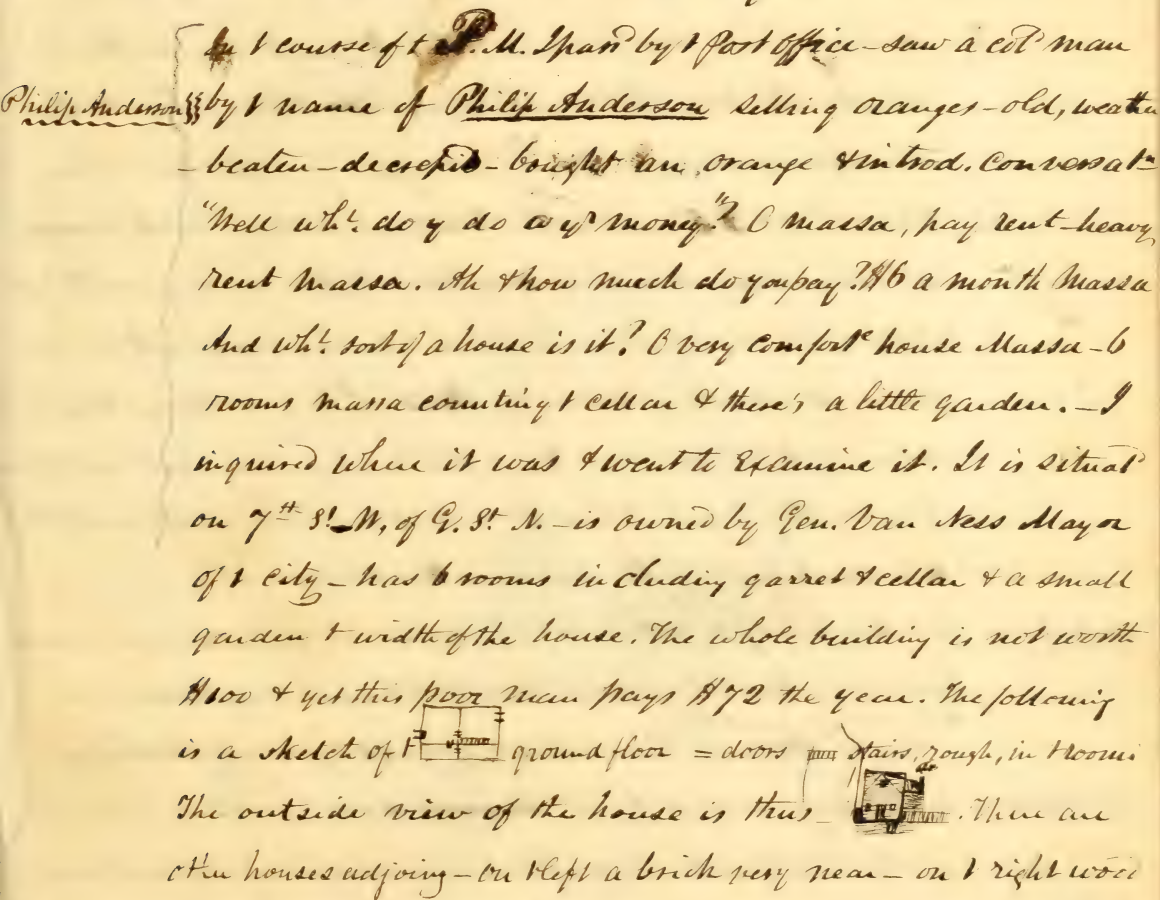 In t course of t P.M. I pass'd by t Post Office – saw a cold man
Philip Anderson by t name of Philip Anderson selling oranges – old, weather
- beaten – decrepid – bought an orange & introd. conversatn
"Well wht. do y do w yr money"? O massa, pay rent – heavy
rent massa. Ah & how much do you pay? $6 a month Massa
And wht. sort of a house is it? O very comforte house Massa – 6
rooms massa counting t cellar & there's a little garden. – I
inquired where it was & went to examine it. It is situatd
on 7th St. W, of G. St. N. – is owned by Gen. Van Ness Mayor
of t city – has 6 rooms including garret & cellar & a small
garden t width of the house. The whole building is not worth
$100 & yet this poor man pays $72 the year. The following
is a sketch of t ground floor = doors stairs, rough, in t rooms
The outside view of the house is thus – . There are
other houses adjoing – on t left a brick very near – on t right wood